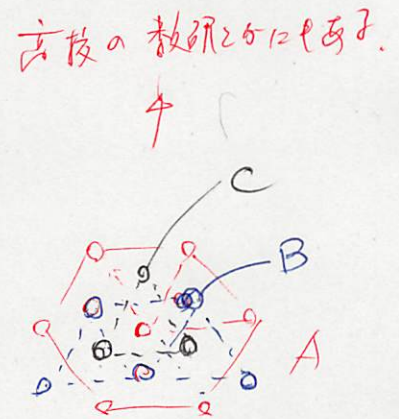 高校の数研とかにもある.
C
B
A